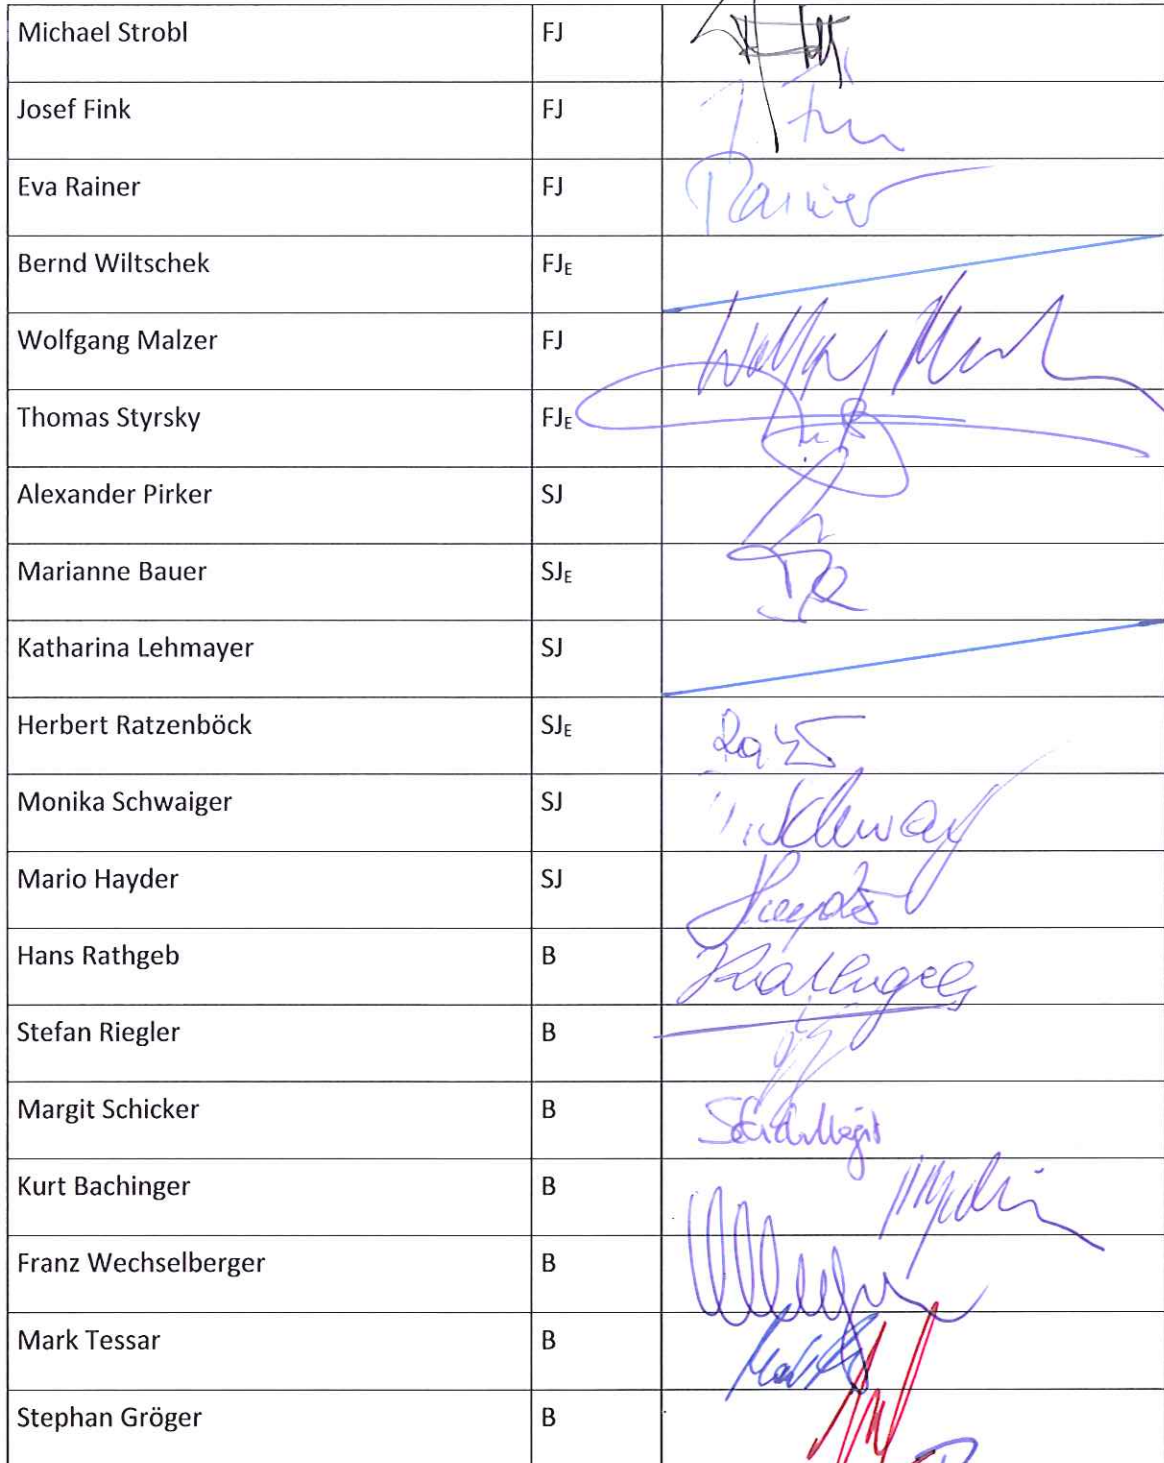 Michael Strobl FJ
Josef Fink FJ
Eva Rainer FJ Rainer
Bernd Wiltschek FJE
Wolfgang Malzer FJ Wolfgang
Thomas Styrsky FJE
Alexander Pirker SJ
Marianne Bauer SJE
Katharina Lehmayer SJ
Herbert Ratzenböck SJE
Monika Schwaiger SJ
Mario Hayder SJ
Hans Rathgeb B
Stefan Riegler B
Margit Schicker B
Kurt Bachinger B
Franz Wechselberger B
Mark Tessar B
Stephan Gröger B